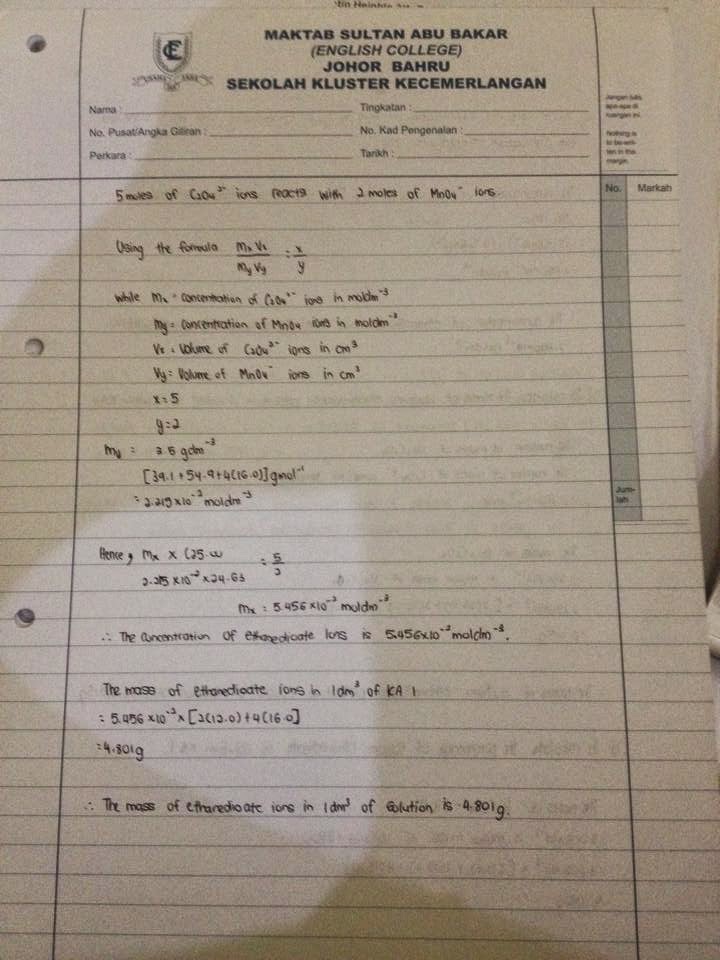 MAKTAB SULTAN ABU BAKAR
(ENGLISH COLLEGE)
JOHOR BAHRU
SEKOLAH KLUSTER KECEMERLANGAN
Nama :
Tingkatan :
No. Pusat/Angka Giliran :
No. Kad Pengenalan :
Perkara :
Tarikh :
Jangan tulis
apa-apa di
ruangan ini.
Nothing is
to be writ-
ten in this
margin.
No. Markah
5 moles of C2O4²⁻ ions reacts with 2 moles of MnO4⁻ ions.
Using the formula Mx Vx / My Vy = x / y
While Mx = concentration of C2O4²⁻ ions in moldm⁻³
My = Concentration of MnO4 ions in moldm⁻³
Vx = Volume of C2O4²⁻ ions in cm³
Vy = Volume of MnO4⁻ ions in cm³
x = 5
y = 2
My = 3.5 gdm⁻³
[39.1 + 54.9 + 4(16.0)] gmol⁻¹
= 2.215 × 10⁻² moldm⁻³
Jum-
lah
Hence, Mx × (25.00 = 5
2.215 × 10⁻² × 24.63 2
Mx = 5.456 × 10⁻² moldm⁻³
∴ The Concentration Of ethanedioate Ions is 5.456×10⁻² moldm⁻³.
The mass of ethanedioate ions in 1dm³ of KA 1
= 5.456 × 10⁻² × [2(12.0) + 4(16.0]
= 4.801g
∴ The mass of ethanedioate ions in 1dm³ of Solution is 4.801g.